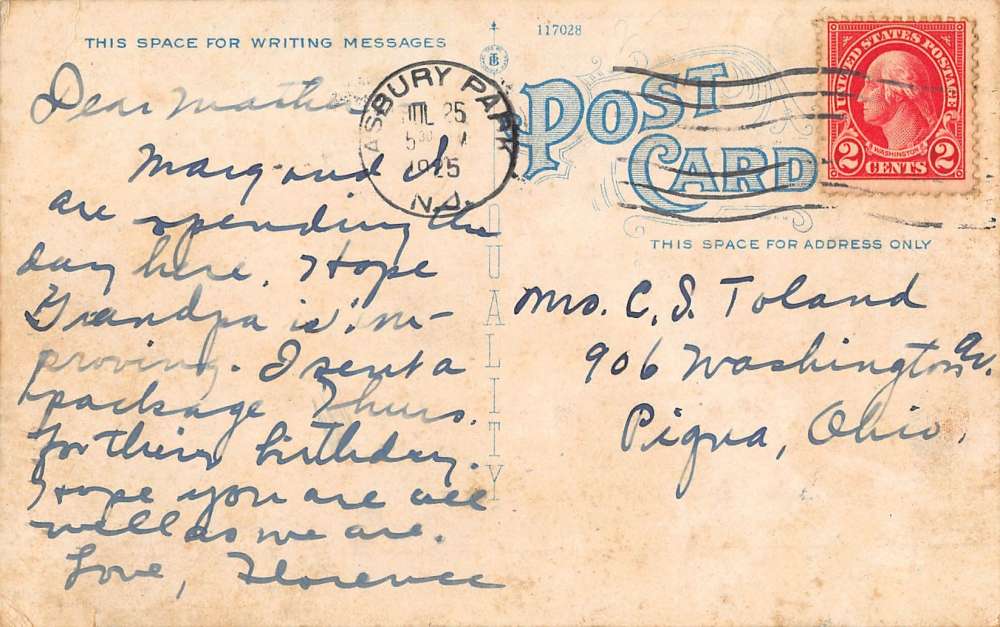 THIS SPACE FOR WRITING MESSAGES
117028
POST CARD
THIS SPACE FOR ADDRESS ONLY
QUALITY
ASBURY PARK
JUL 25
530
1925
N.J.
UNITED STATES POSTAGE
WASHINGTON
2 CENTS 2
Dear Mother
Marg and I
are spending the
day here. Hope
Grandpa is im-
proving. I sent a
package Thurs.
for their birthday.
Hope you are all
well as we are.
Love, Florence
Mrs. C. S. Toland
906 Washington Av.
Piqua, Ohio.